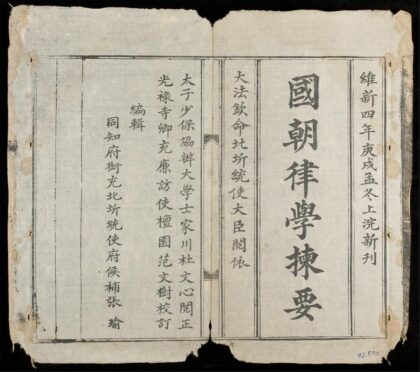 維新四年庚戌孟冬上浣新刊
國朝律學揀要
大法欽命北圻統使大臣閱依
太子少保協辦大學士家川杜文心閱正
光祿寺卿充廉訪使檀園范文樹校訂
編輯
同知府銜充北圻統使府候補張瑜